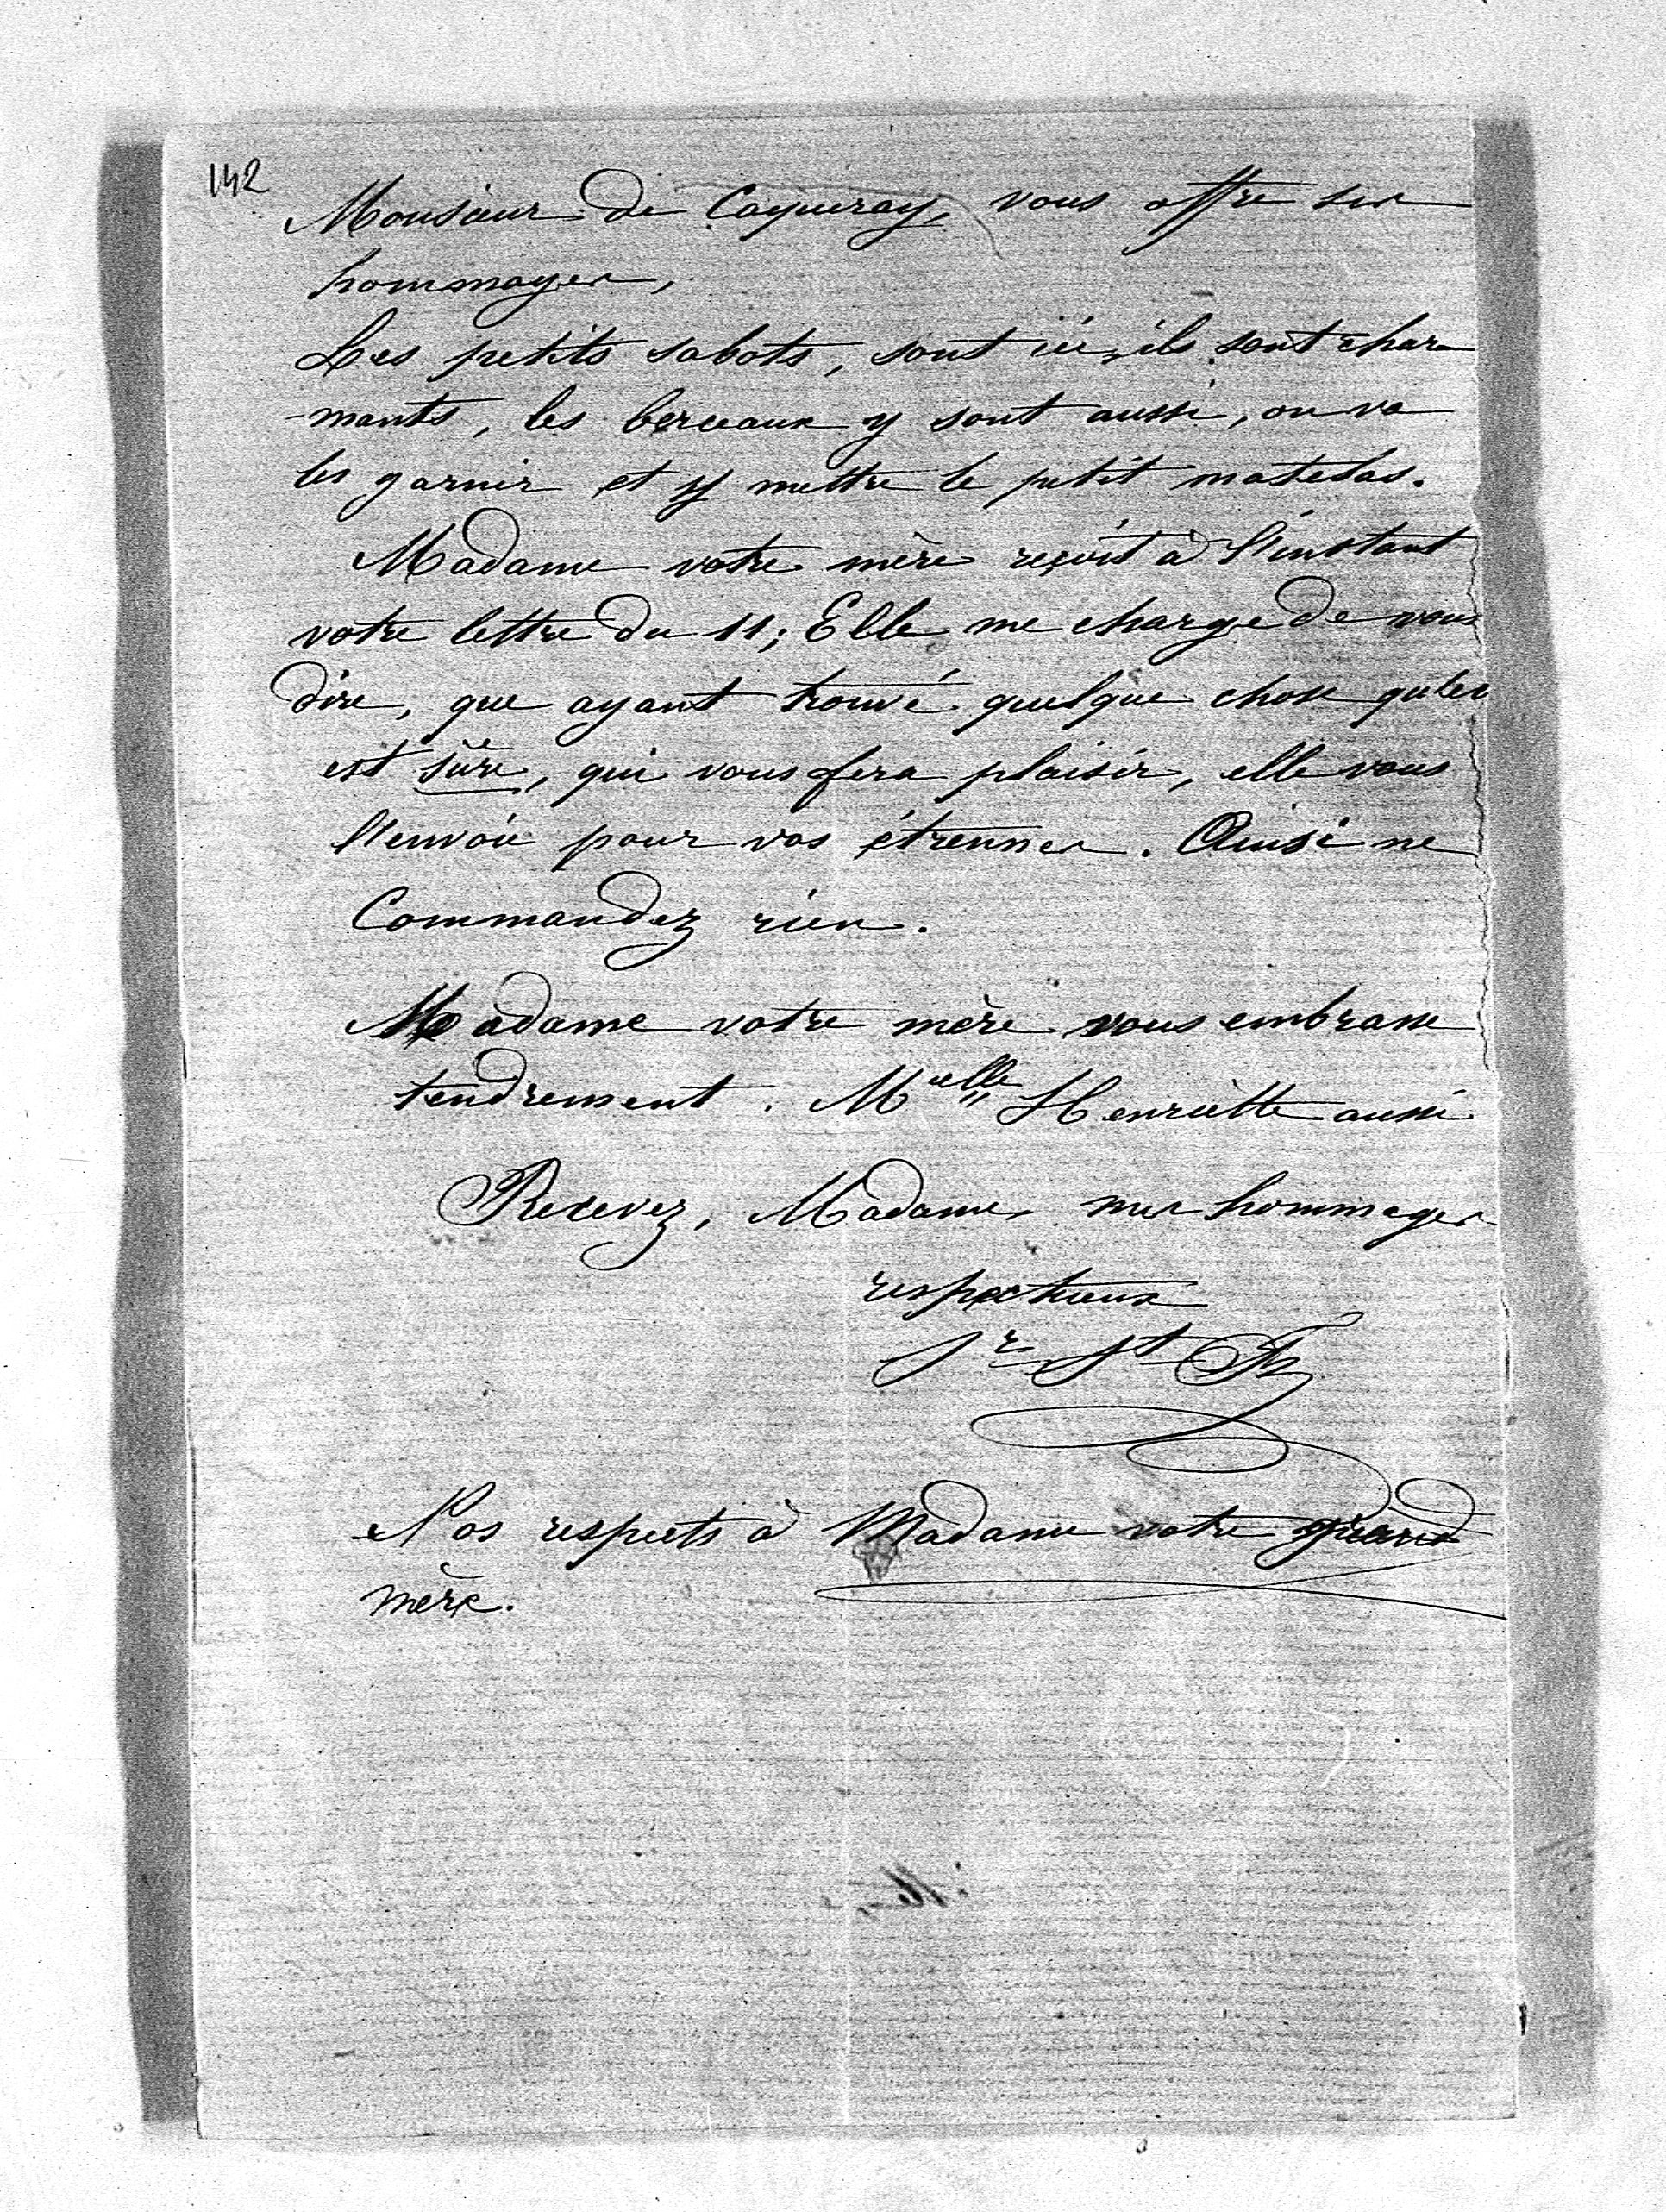 142
Monsieur de Caqueray, vous offre ses
hommages,
Les petits sabots, sont ici, ils sont char-
-mants, les berceaux y sont aussi, on va
les garnir et y mettre le petit matelas.
Madame votre mère reçoit à l'instant
votre lettre du 11; Elle me charge de vous
dire, que ayant trouvé quelque chose qu'elle
est sûre, qui vous fera plaisir, elle vous
l'envoie pour vos étrennes. Ainsi ne
Commandez rien.
Madame votre mère vous embrasse
tendrement. Melle Henriette aussi
Recevez, Madame, mes hommages
respectueux
Sr St
Nos respects à Madame votre grand
mère.